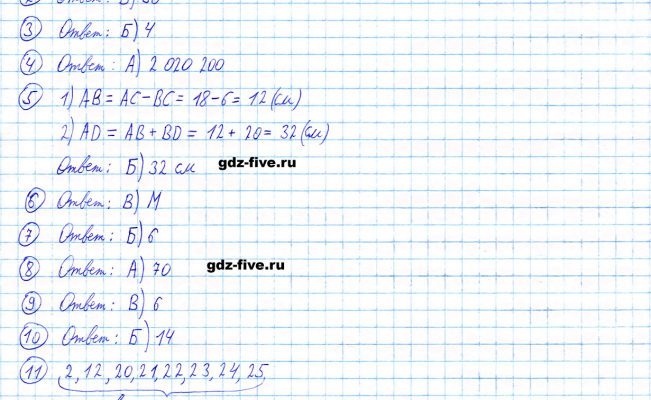 3 Ответ: Б) 4
4 Ответ: А) 2 020 200
5 1) AB = AC - BC = 18 - 6 = 12 (см)
2) AD = AB + BD = 12 + 20 = 32 (см)
Ответ: Б) 32 см
gdz-five.ru
6 Ответ: В) М
7 Ответ: Б) 6
8 Ответ: А) 70
gdz-five.ru
9 Ответ: В) 6
10 Ответ: Б) 14
11 2, 12, 20, 21, 22, 23, 24, 25,